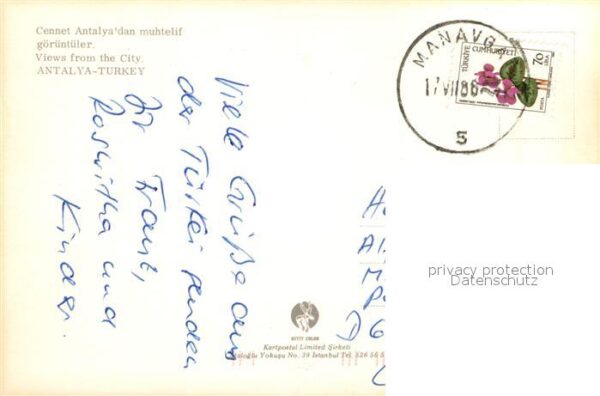 Cennet Antalya'dan muhtelif
görüntüler.
Views from the City.
ANTALYA-TURKEY
MANAVGAT
17 VII 86
S
TÜRKİYE CUMHURİYETİ
70
LİRA
Viele Grüße aus
der Türkei senden
Dir Frant,
Roswitha und
Kinder.
D 6
privacy protection
Datenschutz
KEYET COLOR
Kartpostal Limited Şirketi
Yokuşu No. 39 İstanbul Tel. 526 56